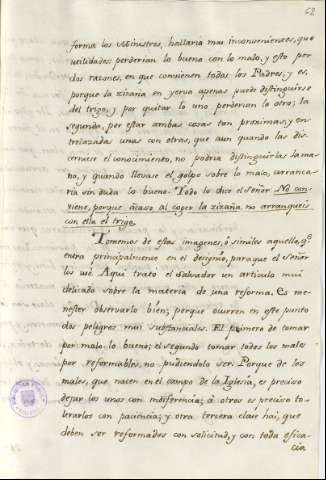 62
forma los Ministros, hallaria mas inconvenientes, que
utilidades: perderian lo bueno con lo malo, y esto por
dos razones, en que convienen todos los Padres; y es,
porque la zizaña en yerva apenas puede distinguirse
del trigo, y por quitar lo uno perderian lo otro; la
segunda, por estar ambas cosas tan proximas, y en-
trelazadas unas con otras, que aun quando las dis-
cerniese el conocimiento, no podria distinguirlas la ma-
no, y quando llevase el golpe sobre lo malo, arranca-
ria sin duda lo bueno. Todo lo dice el Señor. No con-
viene, porque acaso al coger la zizaña, no arranqueis
con ella el trigo.
Tomemos de estas imagenes, ó similes aquello, q.
entra principalmente en el designio, para que el Señor
los usó. Aqui trató el Salvador un articulo mui
delicado sobre la materia de una reforma. Es me-
nester observarlo bien; porque ocurren en este punto
dos peligros mui substanciales. El primero de tomar
por malo lo bueno; el segundo tomar todos los males
por reformables, no pudiendolo ser. Porque de los
males, que nacen en el campo de la Iglesia, es preciso
dejar los unos con indiferencia; á otros es preciso to-
lerarlos con paciencia; y otra tercera clase hai, que
deben ser reformados con solicitud, y con toda efica-
cia